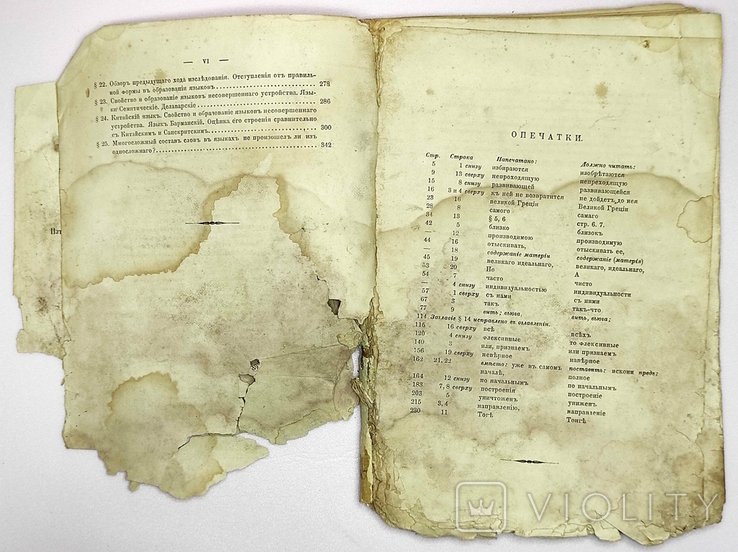 — VI —
§ 22. Обзоръ предыдущаго хода изслѣдованія. Отступленія отъ правиль-
ной формы въ образованіи языковъ. 278
§ 23. Свойство и образованіе языковъ несовершеннаго устройства. Язы-
ки Семитическіе. Делаварскіе 286
§ 24. Китайскій языкъ. Свойство и образованіе языковъ несовершеннаго
устройства. Языкъ Барманскій. Оцѣнка его строенія сравнительно
съ Китайскимъ и Санскритскимъ. 300
§ 25. Многосложный составъ словъ въ языкахъ не произошелъ ли изъ
односложнаго? 342
ОПЕЧАТКИ.
Стр. Строка Напечатано: Должно читать:
5 1 снизу избираются изобрѣтаются
9 13 сверху непроходящую непреходящую
15 8 снизу развивающей развивающейся
16 3 и 4 сверху къ ней не возвратится не дойдетъ до нея
23 16 великой Греціи Великой Греціи
28 8 самого самаго
34 13 § 5, 6 стр. 6. 7.
42 5 близко близокъ
— 12 производимою производимую
44 16 отыскивать, отыскивать ее,
— 18 содержаніе матеріи содержаніе (матерія)
45 19 великаго идеальнаго, великаго, идеальнаго,
53 20 Но А
54 7 часто чисто
— 4 снизу индивидуальностью индивидуальности
57 1 сверху съ нами съ ними
67 3 такъ такъ-что
77 9 вить; вьюва, вить, вьюва;
114 Заглавіе § 14 исправлено въ оглавленіи.
115 16 сверху всѣ всѣхъ
120 4 снизу флексивные то флексивные
140 3 или, признаемъ или признаемъ
156 19 сверху невѣрное навѣрное
162 21, 22 вмѣсто: уже въ самомъ поставить: искони предъ:
началѣ, полное
164 12 снизу по начальнымъ по начальнымъ
183 7, 8 сверху построенія построеніе
203 5 уничтоженъ униженъ
215 3, 4 направленію, направленіе
230 11 Тагѣ Тонгѣ
VIOLITY